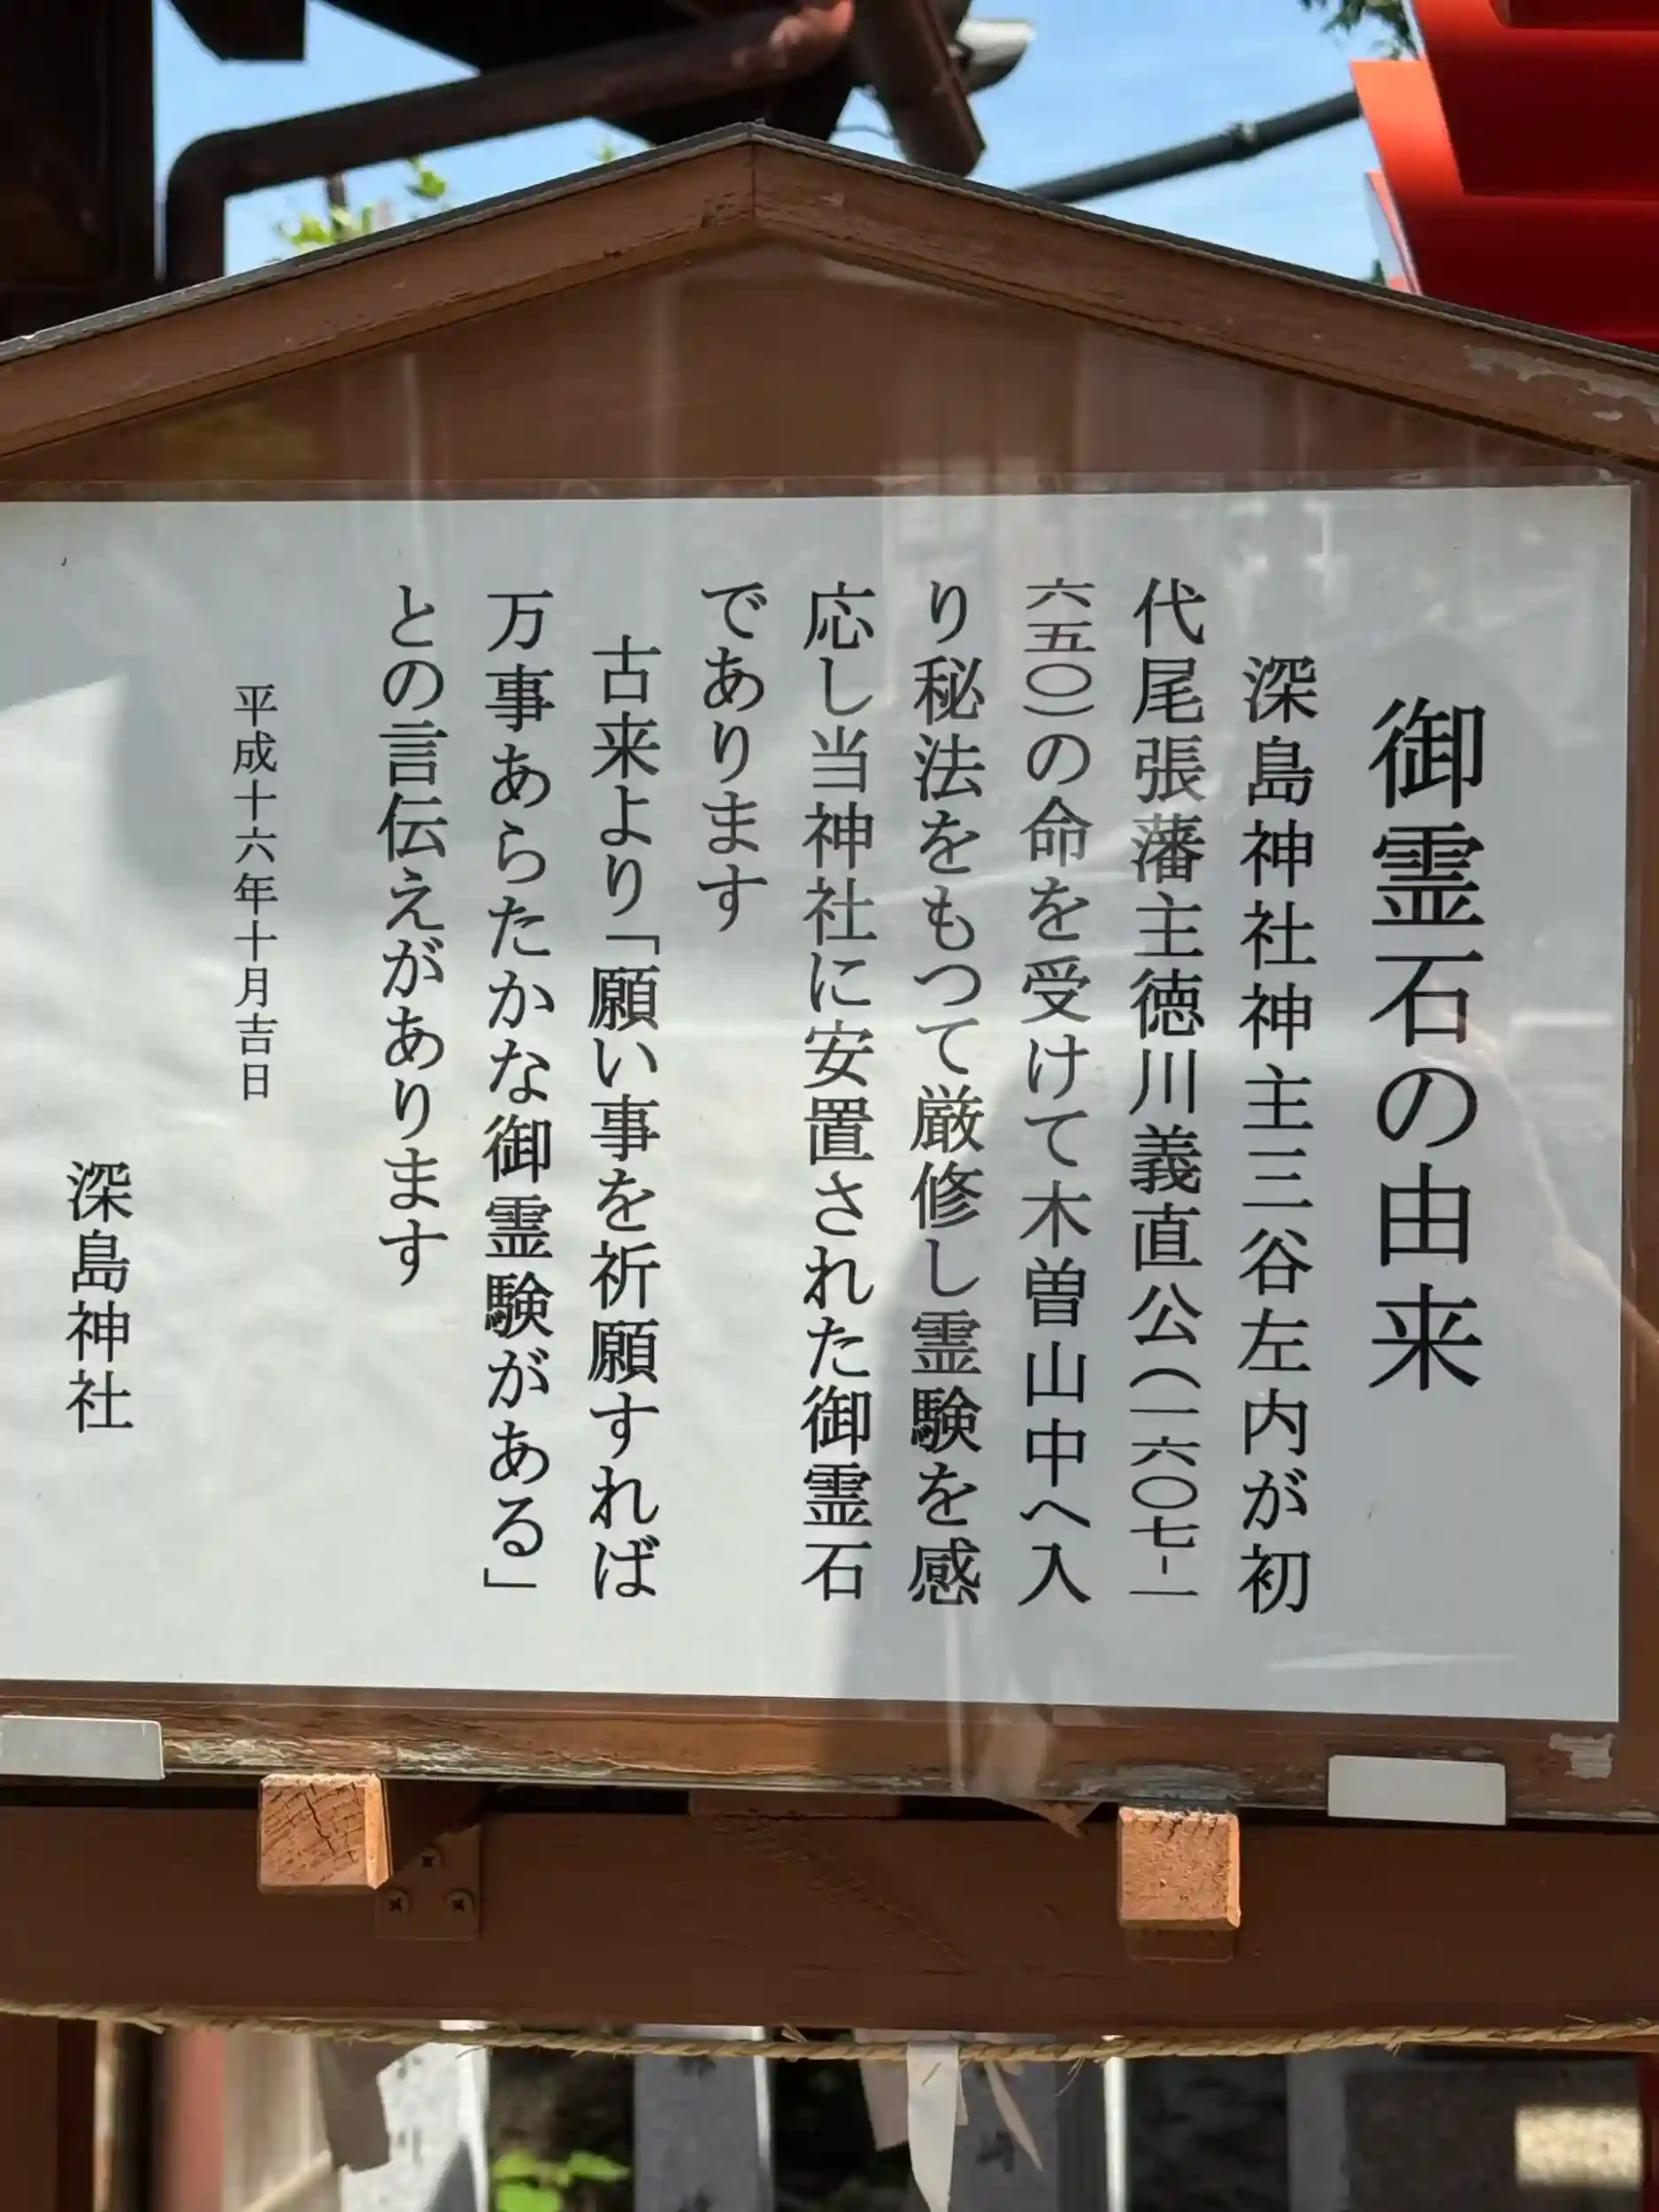 御霊石の由来
深島神社神主三谷左内が初
代尾張藩主徳川義直公(一六〇七-一
六五〇)の命を受けて木曽山中へ入
り秘法をもつて厳修し霊験を感
応し当神社に安置された御霊石
であります
古来より「願い事を祈願すれば
万事あらたかな御霊験がある」
との言伝えがあります
平成十六年十月吉日
深島神社